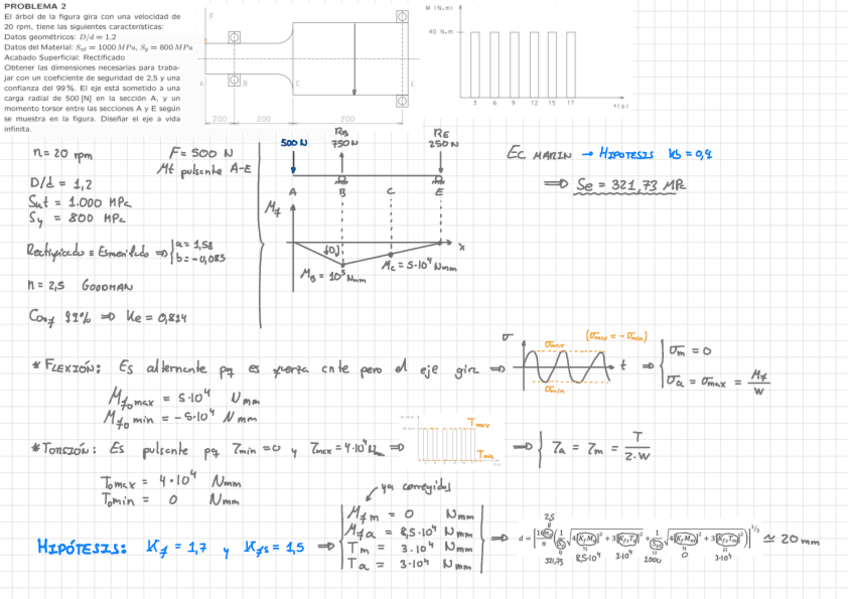 PROBLEMA 2
El árbol de la figura gira con una velocidad de
20 rpm, tiene las siguientes características:
Datos geométricos: D/d = 1,2
Datos del Material: Sut = 1000 MPa, Sy = 800 MPa
Acabado Superficial: Rectificado
Obtener las dimensiones necesarias para traba-
jar con un coeficiente de seguridad de 2,5 y una
confianza del 99%. El eje está sometido a una
carga radial de 500 [N] en la sección A, y un
momento torsor entre las secciones A y E según
se muestra en la figura. Diseñar el eje a vida
infinita.
F
A
B
C
E
200
200
200
M (N.m)
40 N.m
3 6 9 12 15 17
T(s)
n = 20 rpm
F = 500 N
Mt pulsante A-E
D/d = 1,2
Sut = 1.000 MPa
Sy = 800 MPa
Rectificado = Esmerilado ⇒ { a = 1,58
b = -0,085
n = 2,5 GOODMAN
Conf 99% ⇒ Ke = 0,814
500 N
RB
750 N
RE
250 N
A B C E
Mf
x
MB = 10⁵ Nmm
Mc = 5·10⁴ Nmm
Ec MARIN → HIPOTESIS kb = 0,9
⇒ Se = 321,73 MPa
* FLEXIÓN: Es alternante pq es fuerza cnte pero el eje gira ⇒
σ
σmax
(σmax = -σmin)
σmin
t
⇒ { σm = 0
σa = σmax = Mf/W
Mfo max = 5·10⁴ Nmm
Mfo min = -5·10⁴ Nmm
* TORSIÓN: Es pulsante pq τmin = 0 y τmax = 4·10⁴ Nmm ⇒
Tmax
Tmin
⇒ { τa = τm = T/2·W
Tomax = 4·10⁴ Nmm
Tomin = 0 Nmm
ya corregidos
HIPÓTESIS: Kf = 1,7 y Kfs = 1,5 ⇒
Mfm = 0 Nmm
Mfa = 8,5·10⁴ Nmm
Tm = 3·10⁴ Nmm
Ta = 3·10⁴ Nmm
2,5
⇒ d = [16n/π (1/Se √4(KfMa)²+3(KfsTa)² + 1/Sut √4(KfMm)²+3(KfsTm)²)]^1/3 ≃ 20 mm
321,73 8,5·10⁴ 3·10⁴ 1000 0 3·10⁴